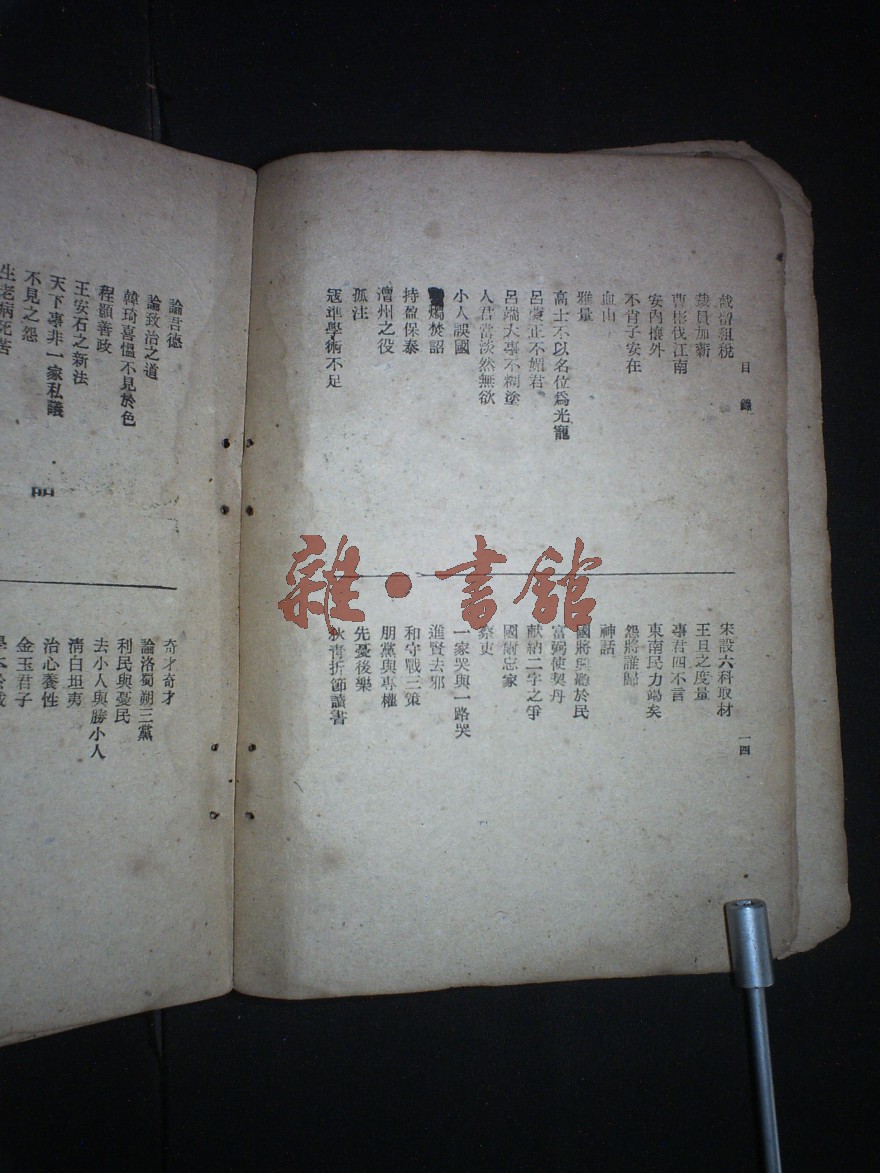 目錄
截留租稅
裁員加薪
曹彬伐江南
安內攘外
不肖子安在
血山
雅量
高士不以名位爲光寵
呂蒙正不媚君
呂端大事不糊塗
人君當淡然無欲
小人誤國
燭焚詔
持盈保泰
澶州之役
孤注
寇準學術不足
一四
宋設六科取材
王旦之度量
事君四不言
東南民力竭矣
怨將誰歸
神話
國將興聽於民
富弼使契丹
献納二字之爭
國爾忘家
察吏
一家哭與一路哭
進賢去邪
和守戰三策
朋黨與專權
先憂後樂
狄靑折節讀書
論君德
論致治之道
韓琦喜慍不見於色
程顥善政
王安石之新法
天下事非一家私議
不見之怨
生老病死苦
奇才奇才
論洛蜀朔三黨
利民與憂民
去小人與勝小人
淸白坦夷
治心養性
金玉君子
雜·書館